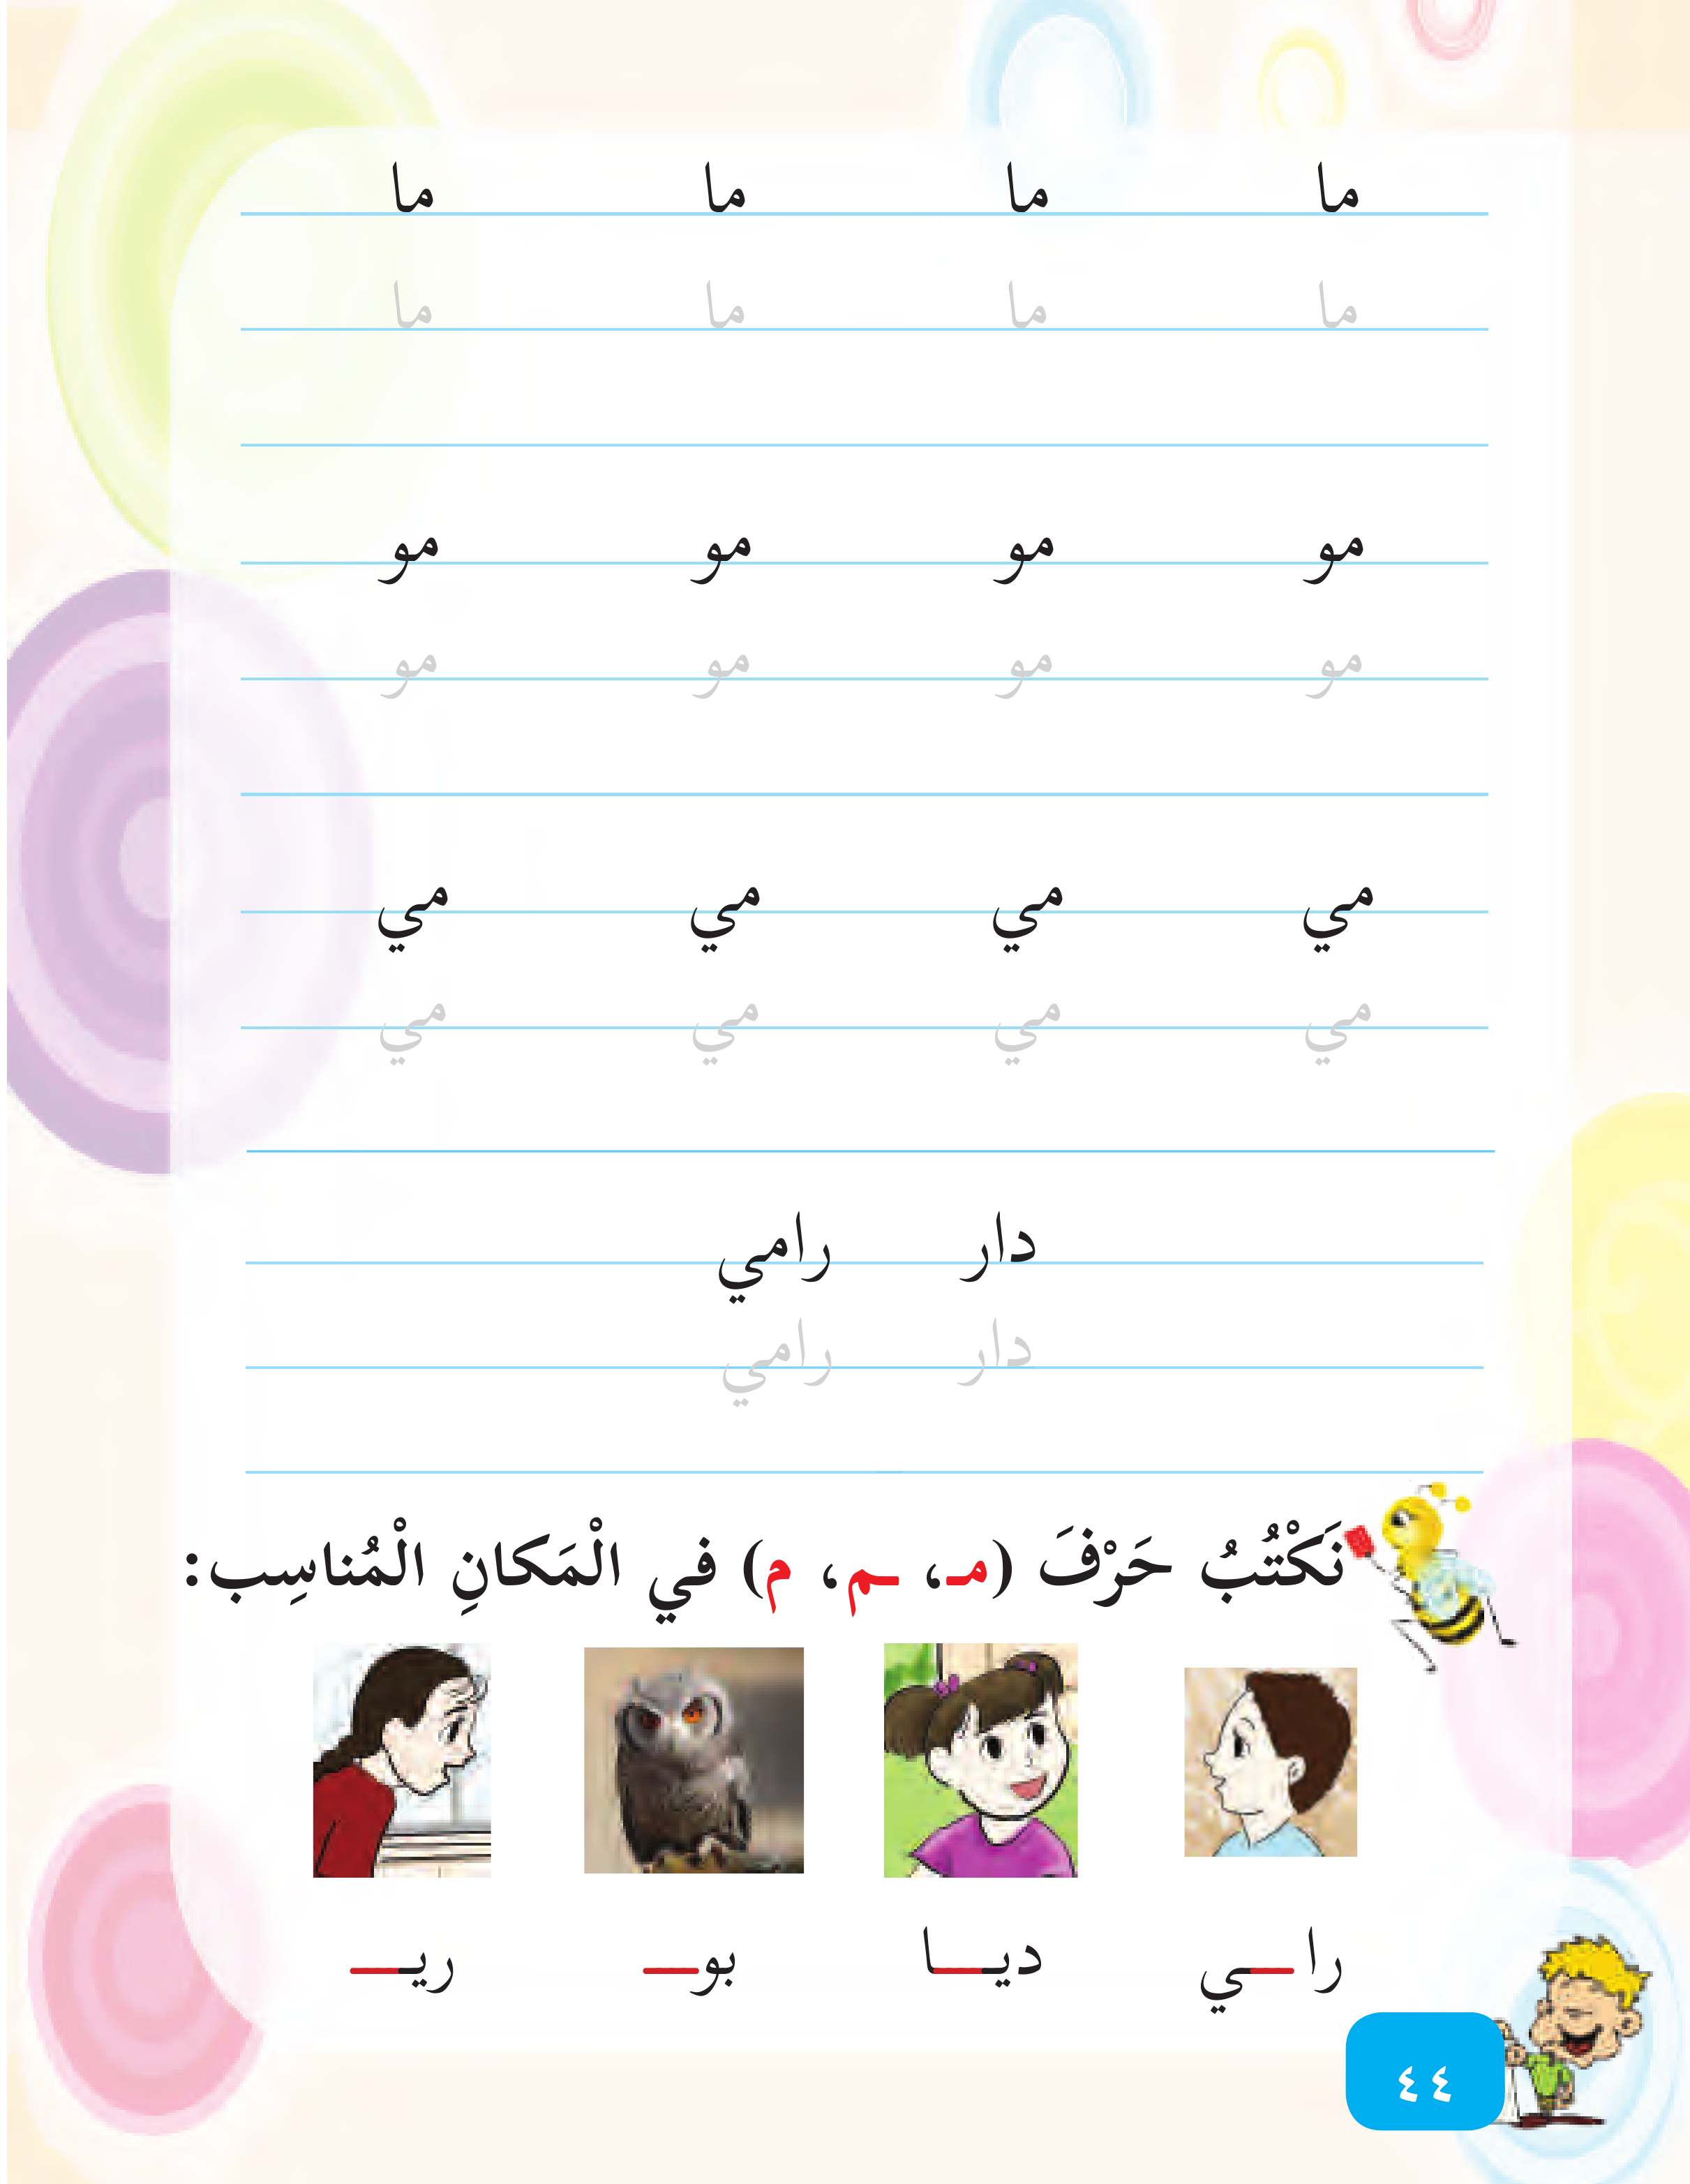 ما ما ما ما
ما ما ما ما
مو مو مو مو
مو مو مو مو
مي مي مي مي
مي مي مي مي
دار رامي
دار رامي
نَكْتُبُ حَرْفَ (مـ، ـم، م) في الْمَكانِ الْمُناسِب:
را__ي ديـ__ا بو__ ريـ__
٤٤